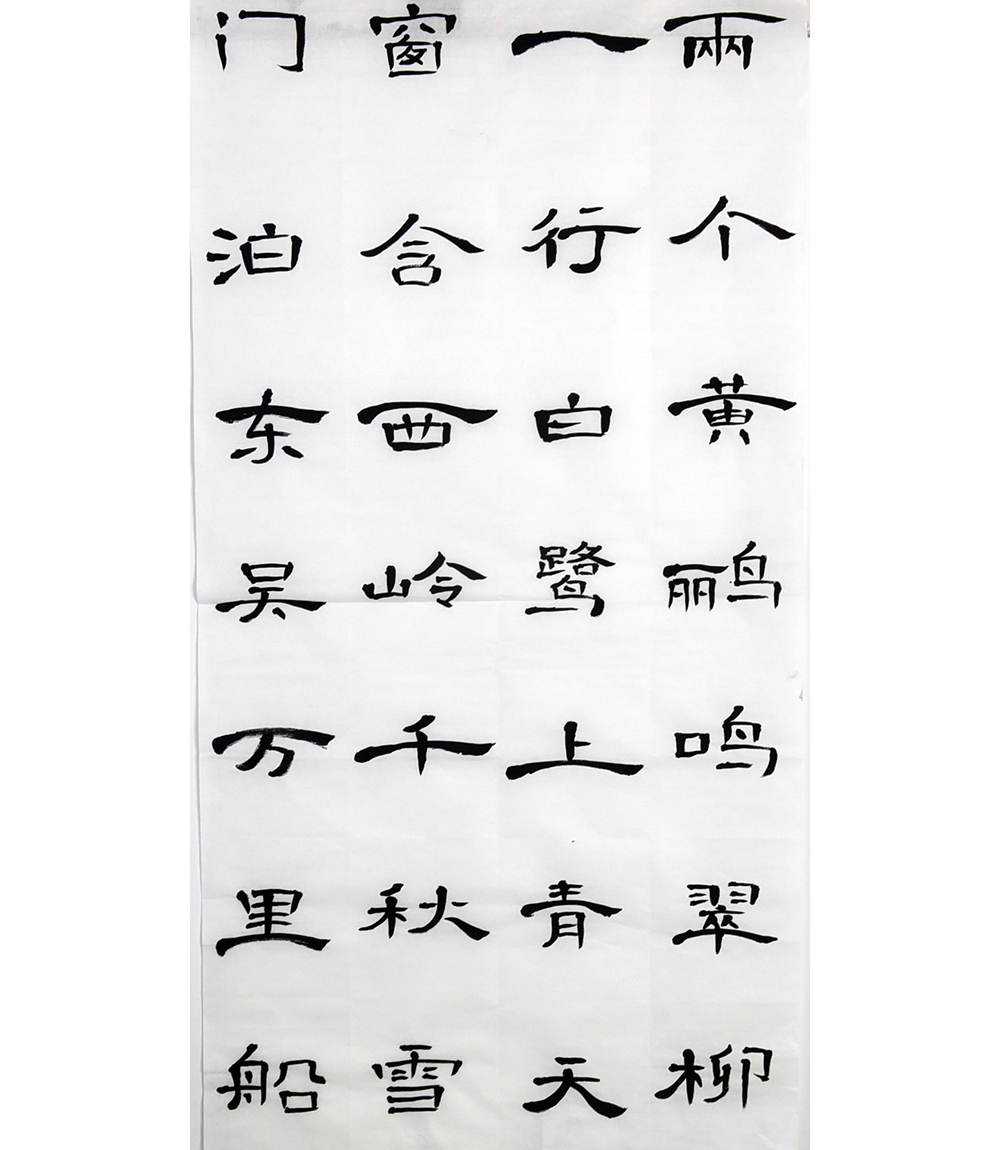 兩个黄鹂鸣翠柳
一行白鹭上青天
窗含西岭千秋雪
门泊东吴万里船